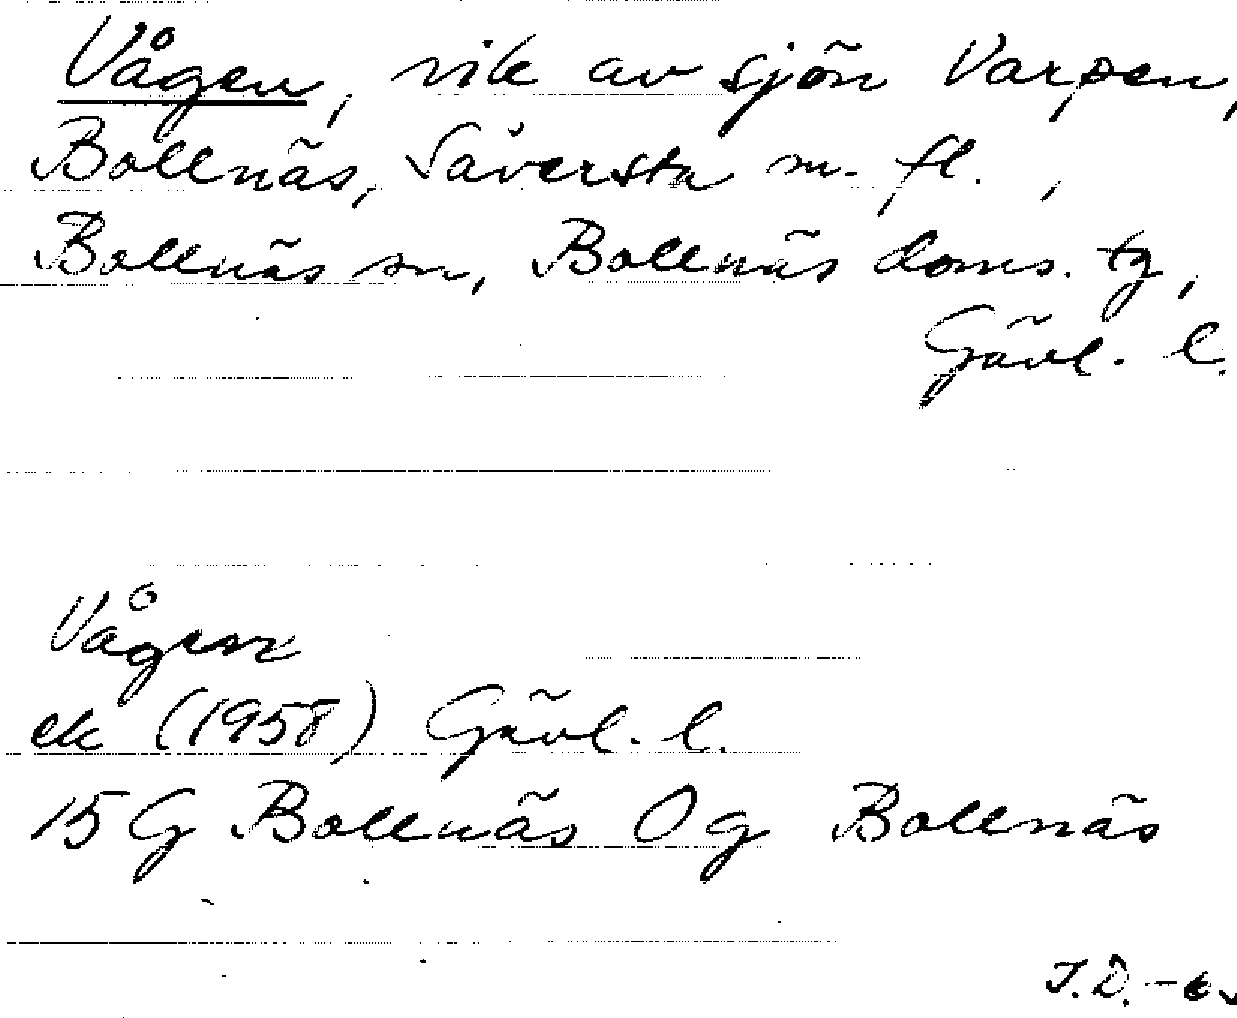 Vågen, vik av sjön Varpen,
Bollnäs, Säversta m. fl.,
Bollnäs sn, Bollnäs doms. tg,
Gävl. l.
Vågen
ek (1958) Gävl. l.
15 G Bollnäs 0g Bollnäs
J.D.